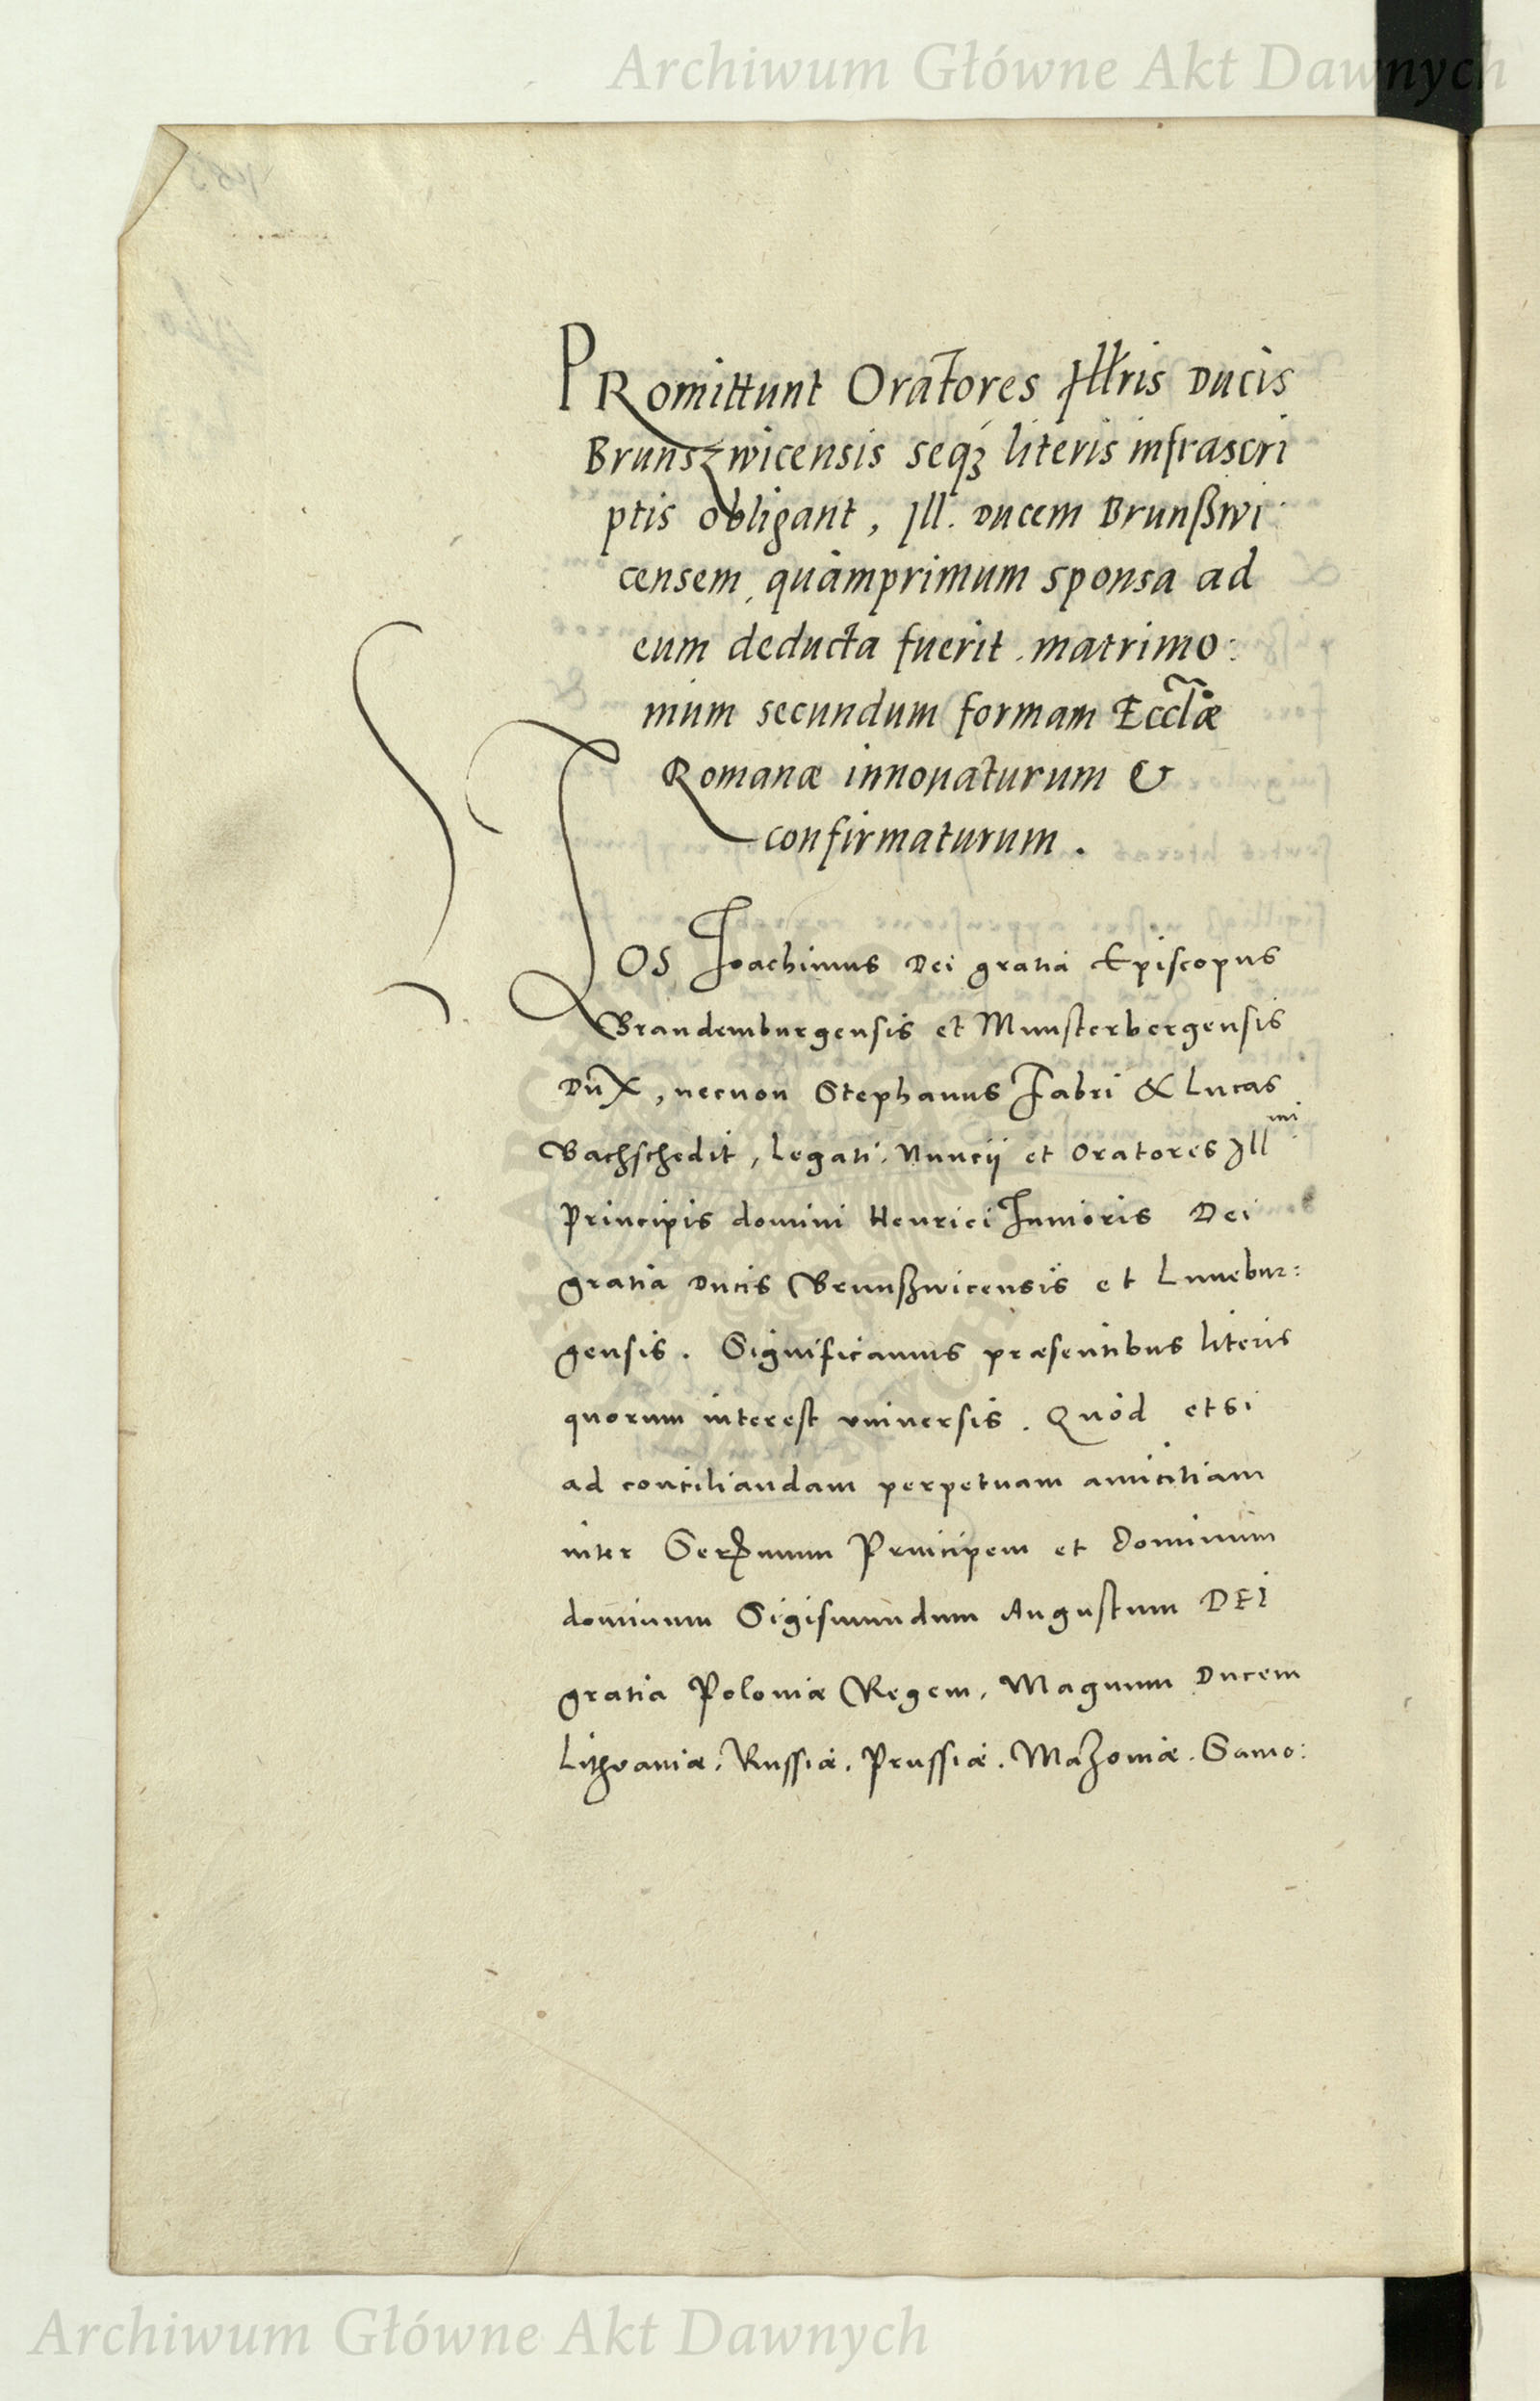 Archiwum Główne Akt Dawnych
PRomittunt Oratores Illris Ducis
Brunszwicensis seq3 literis infrascri
ptis obligant, Ill. Ducem Brunßwi
censem, quàmprimum sponsa ad
eum deducta fuerit. matrimo:
nium secundum formam Ecclæ
Romanæ innovaturum &
confirmaturum.
NOS Joachimus Dei gratia Episcopus
Brandemburgensis et Munsterbergensis
Dux, necnon Stephanus Fabri & Lucas
Bachschedit, Legati, Nuncij et Oratores Ill mi
Principis domini Henrici Junioris Dei
gratia Ducis Brunßwicensis et Lunebur:
gensis. Significamus præsentibus literis
quorum interest universis. Quòd etsi
ad conciliandam perpetuam amicitiam
inter Serenmum Principem et Dominum
dominum Sigismundum Augustum DEI
gratia Poloniæ Regem, Magnum Ducem
Lithvaniæ, Russiæ, Prussiæ, Mazoviæ, Samo:
Archiwum Główne Akt Dawnych